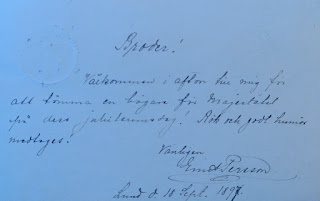 Broder!
Välkommen i afton till mig för
att tömma en bägare för Majestätet
på dess jubileumsdag! Rök och godt humör
medtages!
Vänligen
Ernst Person
Lund d. 18 Sept. 1897